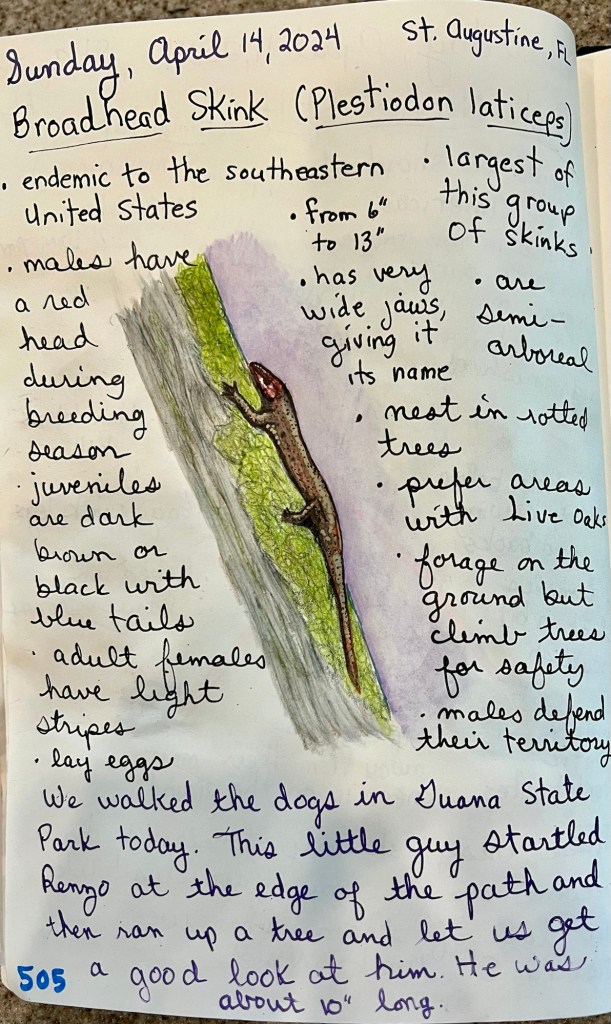 Sunday, April 14, 2024
St. Augustine, FL
Broadhead Skink (Plestiodon laticeps)
· endemic to the southeastern
United States
· largest of
this group
of skinks.
· from 6"
to 13"
· males have
a red
head
during
breeding
season
· has very
wide jaws,
giving it
its name
· are
semi-
arboreal
· nest in rotted
trees
· juveniles
are dark
brown or
black with
blue tails
· prefer areas
with Live Oaks
· forage on the
ground but
climb trees
for safety
· adult females
have light
stripes
· males defend
their territory
· lay eggs
We walked the dogs in Guana State
Park today. This little guy startled
Renzo at the edge of the path and
then ran up a tree and let us get
a good look at him. He was
about 10" long.
505